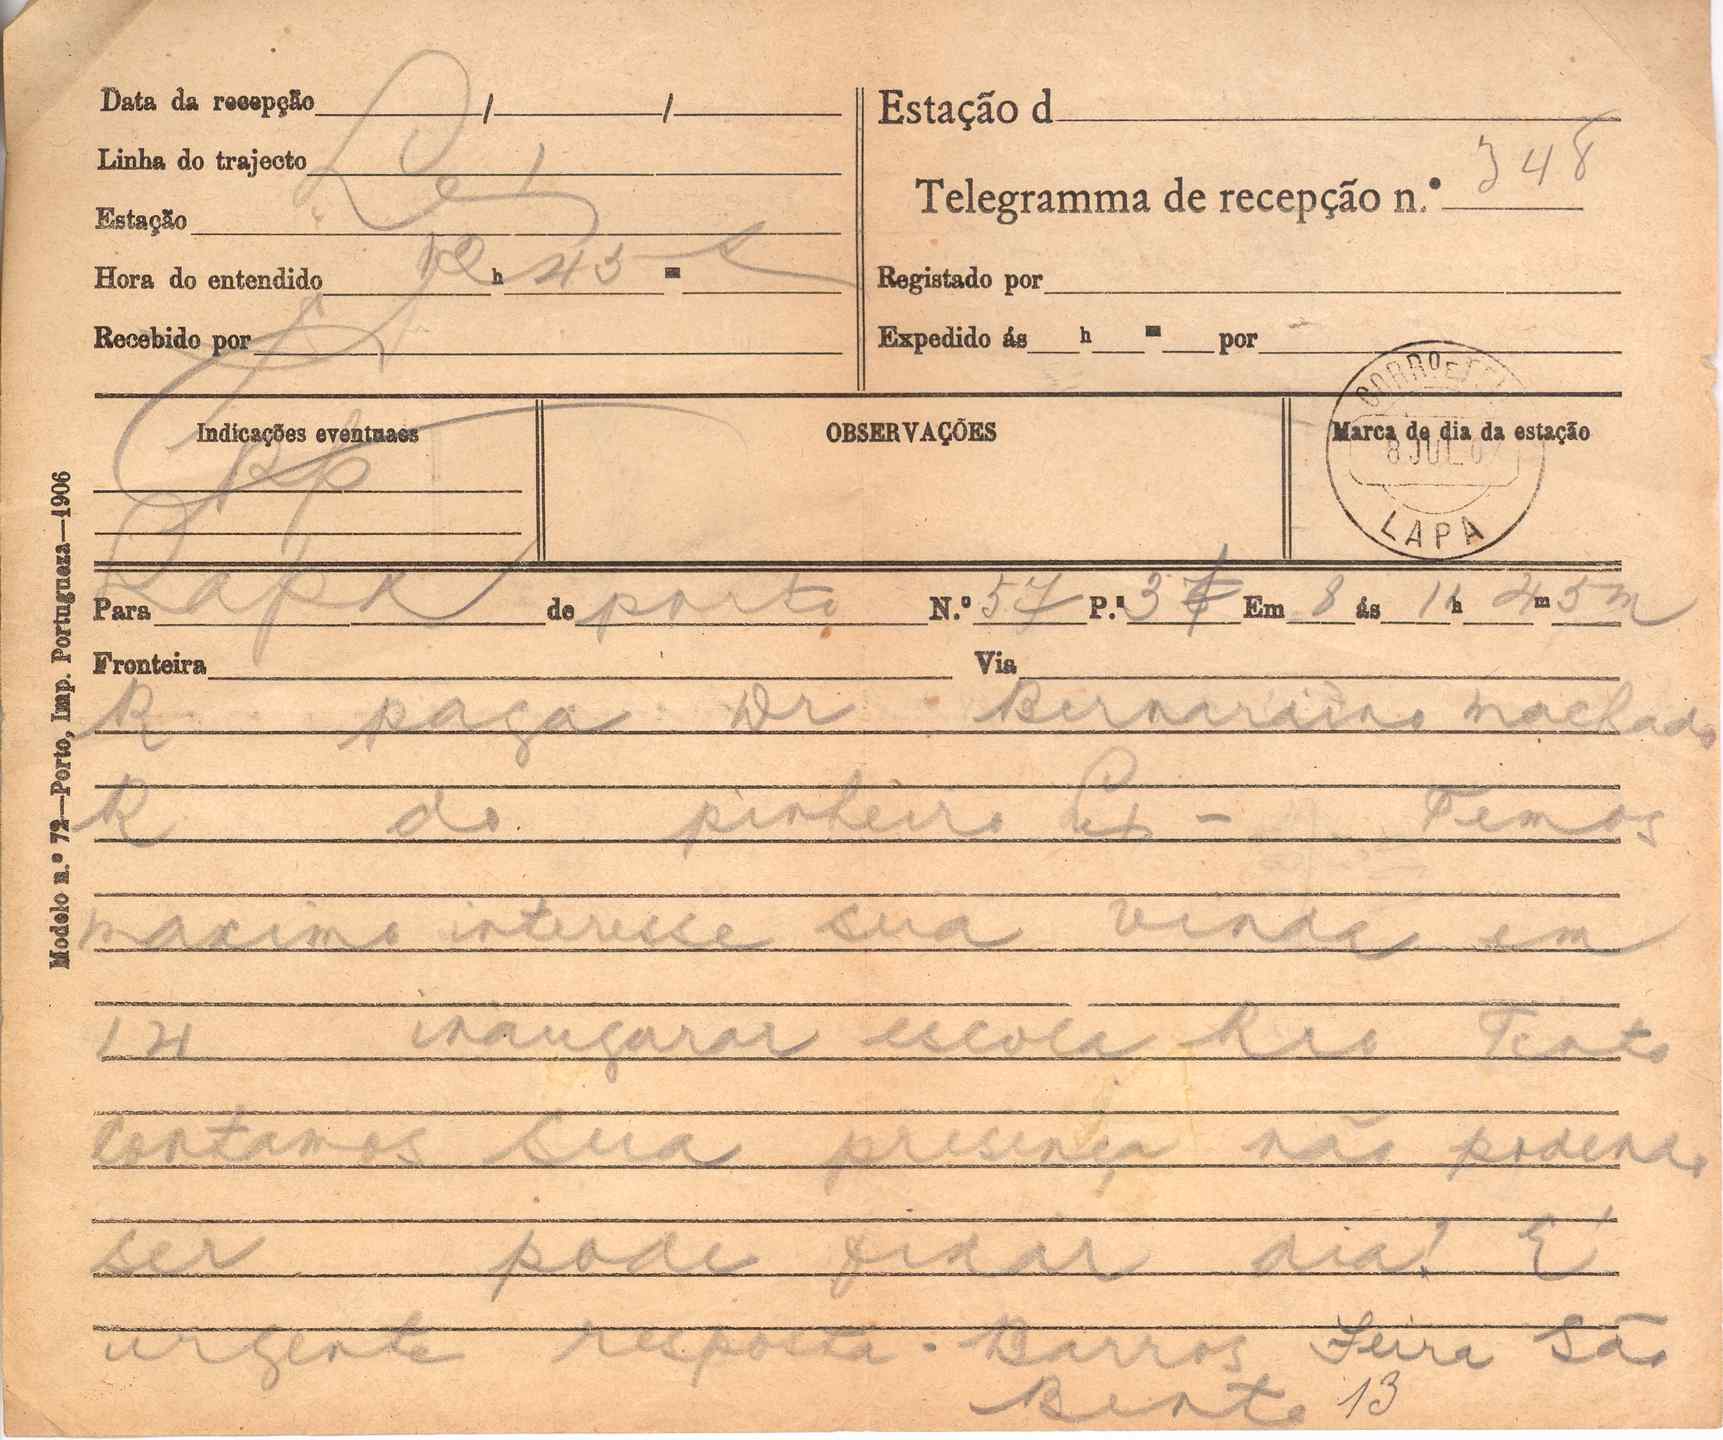 Data da recepção / /
Linha do trajecto
Estação
Hora do entendido 2 h 45 m
Recebido por
Estação d
Telegramma de recepção n.º 348
Registado por
Expedido ás h m por
Indicações eventuaes
OBSERVAÇÕES
Marca de dia da estação
CORRO E TEL
8 JUL
LAPA
Modelo n.º 72—Porto, Imp. Portugueza—1906
Para Lapa de porto N.º 57 P.ª 37 Em 8 ás 1 h 45 m
Fronteira Via
R paga Dr Bernardino machado
R do pinheiro Lx - Temos
maximo interesse sua vinda em
14 inaugurar escola Rio Tinto
Contamos sua presença não podendo
ser pode fixar dia? É
urgente resposta. Barros Feira São
Bento 13